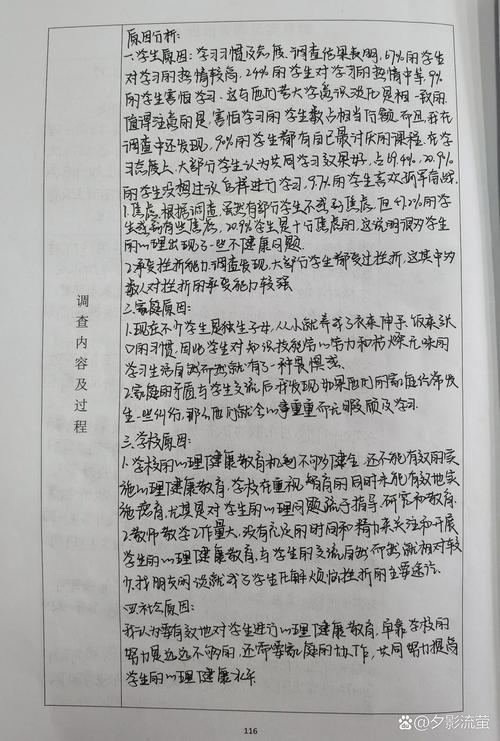 调查内容及过程
原因分析:
一.学生原因:学习习惯及态度.调查结果表明,67%的学生
对学习的热情较高,24%的学生对学习的热情中等,9%
的学生害怕学习.这与他们考大学意识淡化是相一致的.
值得注意的是,害怕学习的学生数占相当份额.而且,我在
调查中还发现,90%的学生都有自己最讨厌的课程.在学
习态度上,大部分学生认为共同学习效果好,占69.4%,20.9%
的学生没想过该怎样进行学习,9.7%的学生喜欢孤军奋战.
1.焦虑,根据调查,虽然有部分学生不感到焦虑,但47.2%的学
生感到有些焦虑,20.9%学生是十分焦虑的,这说明很多学生
的心理出现了一些不健康问题.
2.承受挫折能力.调查发现,大部分学生都受过挫折,这其中多
数人对挫折的承受能力较强
二.家庭原因:
1.现在不少学生是独生子女,从小就养成了衣来伸手饭来张
口的习惯.因此学生对知识技能信心努力和枯燥无味的
学习生活自然而然就有了一种畏惧感.
2.家庭的矛盾与学生交流后我发现如果他们的家庭经常发
生一些纠纷,那么他们就会心事重重而无暇顾及学习.
三.学校原因:
1.学校的心理健康教育机制不够健全,还不能有效的实
施心理健康教育.学校在重视智育的同时未能有效地实
施德育,尤其是对学生的心理问题疏于指导、研究和教育.
2.教师教学工作量大,没有充足的时间和精力来关注和开展
学生的心理健康教育,与学生的交流自然而然就相对较
少,找朋友闲谈就成了学生在解烦恼挫折的主要途径.
四.社会原因:
我认为要有效地对学生进行心理健康教育,单靠学校的
努力是远远不够的,还需要家庭的协作,共同努力提高
学生的心理健康水平
116
百家号/夕影流萤